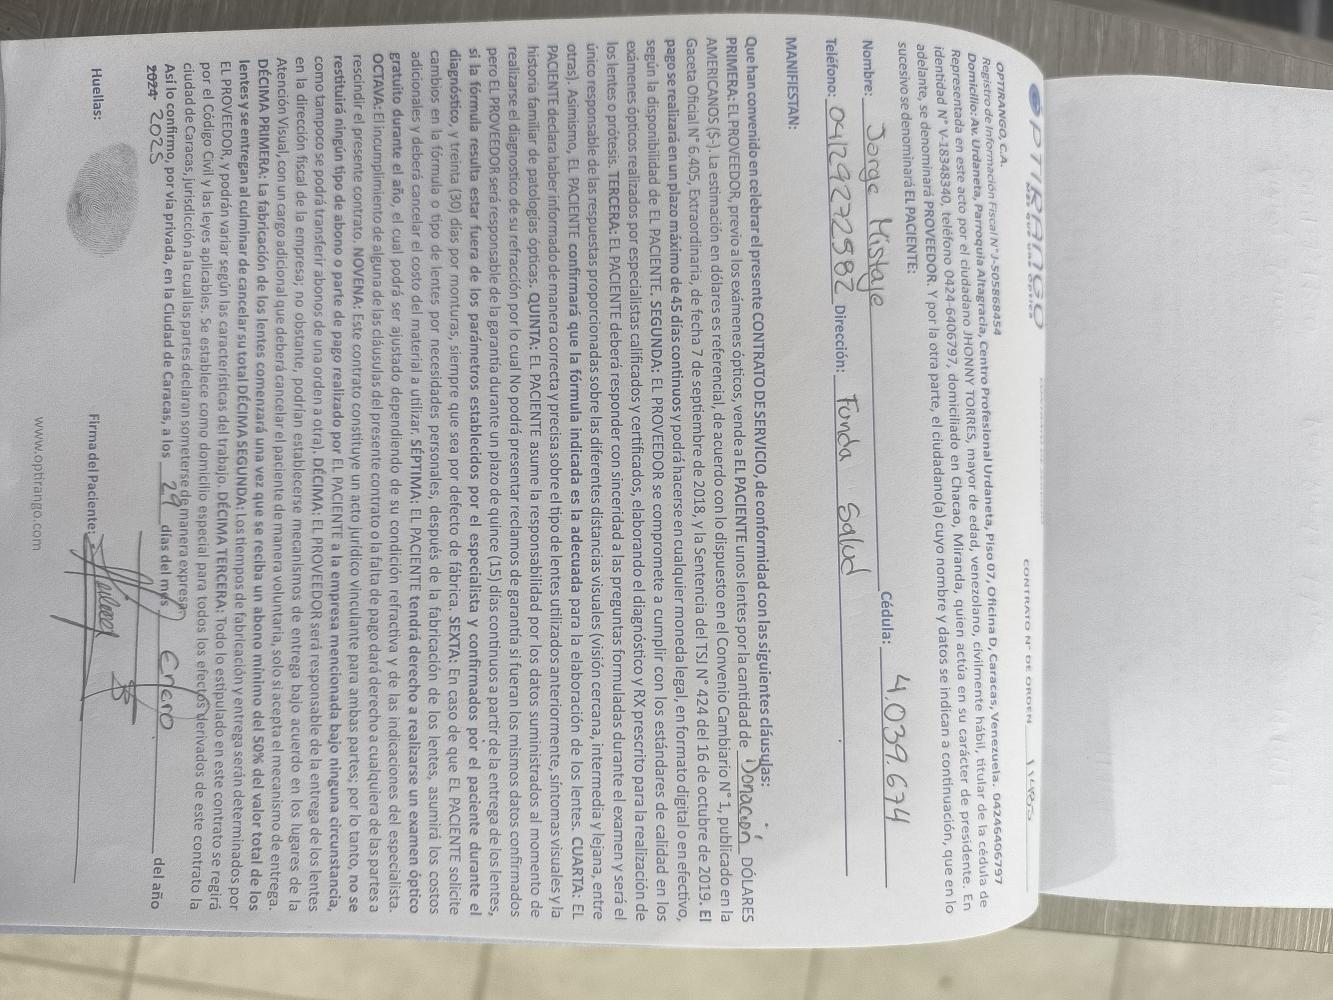 OPTIRANGO
CONTRATO N° DE ORDEN
OPTIRANGO, C.A.
Registro de Información Fiscal N° J-505868454
Domicilio: Av. Urdaneta, Parroquia Altagracia, Centro Profesional Urdaneta, Piso 07, Oficina D, Caracas, Venezuela. 04246406797
Representada en este acto por el ciudadano JHONNY TORRES, mayor de edad, venezolano, civilmente hábil, titular de la cédula de
identidad N° V-18348340, teléfono 0424-6406797, domiciliado en Chacao, Miranda, quien actúa en su carácter de presidente. En
adelante, se denominará PROVEEDOR. Y por la otra parte, el ciudadano(a) cuyo nombre y datos se indican a continuación, que en lo
sucesivo se denominará EL PACIENTE:
Nombre: Jorge Mistaje Cédula: 4.039.674
Teléfono: 04129272582 Dirección: Funda Salud
MANIFIESTAN:
Que han convenido en celebrar el presente CONTRATO DE SERVICIO, de conformidad con las siguientes cláusulas:
PRIMERA: EL PROVEEDOR, previo a los exámenes ópticos, vende a EL PACIENTE unos lentes por la cantidad de Donación DÓLARES
AMERICANOS ($-). La estimación en dólares es referencial, de acuerdo con lo dispuesto en el Convenio Cambiario N° 1, publicado en la
Gaceta Oficial N° 6.405, Extraordinaria, de fecha 7 de septiembre de 2018, y la Sentencia del TSJ N° 424 del 16 de octubre de 2019. El
pago se realizará en un plazo máximo de 45 días continuos y podrá hacerse en cualquier moneda legal, en formato digital o en efectivo,
según la disponibilidad de EL PACIENTE. SEGUNDA: EL PROVEEDOR se compromete a cumplir con los estándares de calidad en los
exámenes ópticos realizados por especialistas calificados y certificados, elaborando el diagnóstico y RX prescrito para la realización de
los lentes o prótesis. TERCERA: EL PACIENTE deberá responder con sinceridad a las preguntas formuladas durante el examen y será el
único responsable de las respuestas proporcionadas sobre las diferentes distancias visuales (visión cercana, intermedia y lejana, entre
otras). Asimismo, EL PACIENTE confirmará que la fórmula indicada es la adecuada para la elaboración de los lentes. CUARTA: EL
PACIENTE declara haber informado de manera correcta y precisa sobre el tipo de lentes utilizados anteriormente, síntomas visuales y la
historia familiar de patologías ópticas. QUINTA: EL PACIENTE asume la responsabilidad por los datos suministrados al momento de
realizarse el diagnostico de su refracción por lo cual No podrá presentar reclamos de garantía si fueran los mismos datos confirmados
pero EL PROVEEDOR será responsable de la garantía durante un plazo de quince (15) días continuos a partir de la entrega de los lentes,
si la fórmula resulta estar fuera de los parámetros establecidos por el especialista y confirmados por el paciente durante el
diagnóstico, y treinta (30) días por monturas, siempre que sea por defecto de fábrica. SEXTA: En caso de que EL PACIENTE solicite
cambios en la fórmula o tipo de lentes por necesidades personales, después de la fabricación de los lentes, asumirá los costos
adicionales y deberá cancelar el costo del material a utilizar. SÉPTIMA: EL PACIENTE tendrá derecho a realizarse un examen óptico
gratuito durante el año, el cual podrá ser ajustado dependiendo de su condición refractiva y de las indicaciones del especialista.
OCTAVA: El incumplimiento de alguna de las cláusulas del presente contrato o la falta de pago dará derecho a cualquiera de las partes a
rescindir el presente contrato. NOVENA: Este contrato constituye un acto jurídico vinculante para ambas partes; por lo tanto, no se
restituirá ningún tipo de abono o parte de pago realizado por EL PACIENTE a la empresa mencionada bajo ninguna circunstancia,
como tampoco se podrá transferir abonos de una orden a otra). DÉCIMA: EL PROVEEDOR será responsable de la entrega de los lentes
en la dirección fiscal de la empresa; no obstante, podrían establecerse mecanismos de entrega bajo acuerdo en los lugares de la
Atención Visual, con un cargo adicional que deberá cancelar el paciente de manera voluntaria, solo si acepta el mecanismo de entrega.
DÉCIMA PRIMERA: La fabricación de los lentes comenzará una vez que se reciba un abono mínimo del 50% del valor total de los
lentes y se entregan al culminar de cancelar su total DÉCIMA SEGUNDA: Los tiempos de fabricación y entrega serán determinados por
EL PROVEEDOR, y podrán variar según las características del trabajo. DÉCIMA TERCERA: Todo lo estipulado en este contrato se regirá
por el Código Civil y las leyes aplicables. Se establece como domicilio especial para todos los efectos derivados de este contrato la
ciudad de Caracas, jurisdicción a la cual las partes declaran someterse de manera expresa.
Así lo confirmo, por vía privada, en la Ciudad de Caracas, a los 29 días del mes Enero del año
2024 2025
Huellas: Firma del Paciente:
www.optirango.com